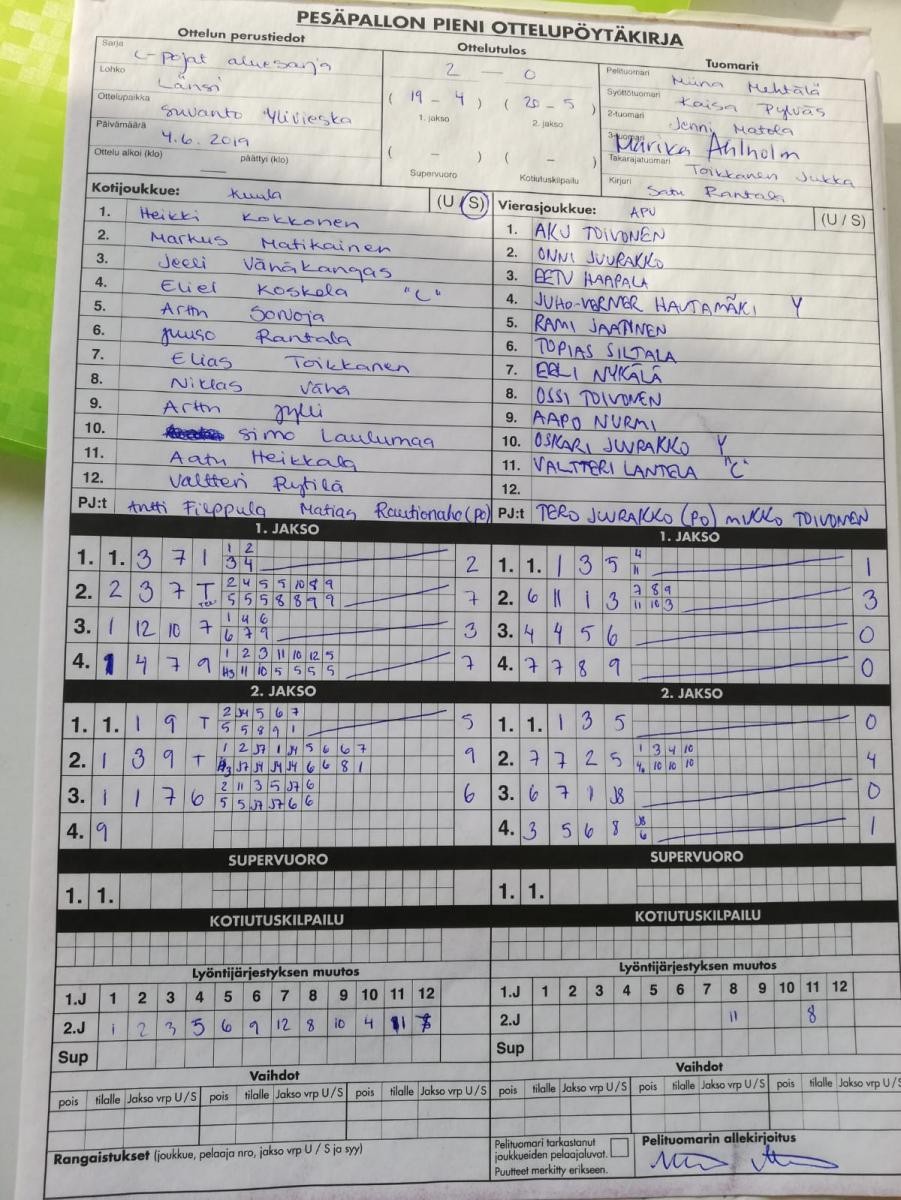 PESÄPALLON PIENI OTTELUPÖYTÄKIRJA
Ottelun perustiedot
Sarja C-pojat aluesarja
Lohko Länsi
Ottelupaikka Suvanto Ylivieska
Päivämäärä 4.6.2019
Ottelu alkoi (klo) — päättyi (klo)
Ottelutulos
2 — 0
( 19 - 4 ) ( 20 - 5 )
1. jakso 2. jakso
( - ) ( - )
Supervuoro Kotiutuskilpailu
Tuomarit
Pelituomari Miina Mehtälä
Syöttötuomari Kaisa Pylväs
2-tuomari Jenni Matola
3-tuomari Marika Ahlholm
Takarajatuomari Toikkanen Jukka
Kirjuri Satu Rantala
Kotijoukkue: Kuula (U / S)
1. Heikki Kokkonen
2. Markus Matikainen
3. Jeeli Vähäkangas
4. Eliel Koskela "C"
5. Arttu Sorvoja
6. Juuso Rantala
7. Elias Toikkanen
8. Niklas Vähä
9. Arttu Jylli
10. Simo Laulumaa
11. Aatu Heikkala
12. Valtteri Pytilä
PJ:t Antti Filppula Matias Rautionaho (po)
Vierasjoukkue: APU (U / S)
1. AKU TOIVONEN
2. ONNI JUURAKKO
3. EETU HAAPALA
4. JUHO-VERNER HAUTAMÄKI Y
5. RAMI JAATINEN
6. TOPIAS SILTALA
7. EELI NYKÄLÄ
8. OSSI TOIVONEN
9. AAPO NURMI
10. OSKARI JUURAKKO Y
11. VALTTERI LANTELA "C"
12.
PJ:t TERO JUURAKKO (PO) MIKKO TOIVONEN
1. JAKSO
1. 1. 3 7 1 2
1 2
3 4
2. 2 3 7 T 7
2 4 5 5 10 8 9
5 5 5 8 8 9 9
3. 1 12 10 7 3
1 4 6
6 7 9
4. 1 4 7 9 7
1 2 3 11 10 12 5
H3 11 10 5 5 5 5
1. JAKSO
1. 1. 1 3 5 1
4
11
2. 6 11 1 3 3
7 8 9
11 10 3
3. 4 4 5 6 0
4. 7 7 8 9 0
2. JAKSO
1. 1. 1 9 T 5
2 J4 5 6 7
5 5 8 9 1
2. 1 3 9 T 9
1 2 J7 1 J4 5 6 6 7
H3 J7 J4 J4 J4 6 6 8 1
3. 1 1 7 6 6
2 11 3 5 J7 6
5 5 J7 J7 6 6
4. 9
2. JAKSO
1. 1. 1 3 5 0
2. 7 7 2 5 4
1 3 4 10
10 10 10
3. 6 7 1 J8 0
4. 3 5 6 8 1
J8
6
SUPERVUORO
1. 1.
SUPERVUORO
1. 1.
KOTIUTUSKILPAILU
KOTIUTUSKILPAILU
Lyöntijärjestyksen muutos
1.J 1 2 3 4 5 6 7 8 9 10 11 12
2.J 1 2 3 5 6 9 12 8 10 4 11
Sup
Lyöntijärjestyksen muutos
1.J 1 2 3 4 5 6 7 8 9 10 11 12
2.J 11 8
Sup
Vaihdot
pois tilalle Jakso vrp U / S pois tilalle Jakso vrp U / S pois tilalle Jakso vrp U / S
Vaihdot
pois tilalle Jakso vrp U / S pois tilalle Jakso vrp U / S pois tilalle Jakso vrp U / S
Rangaistukset (joukkue, pelaaja nro, jakso vrp U / S ja syy)
Pelituomari tarkastanut
joukkueiden pelaajaluvat.
Puutteet merkitty erikseen.
Pelituomarin allekirjoitus